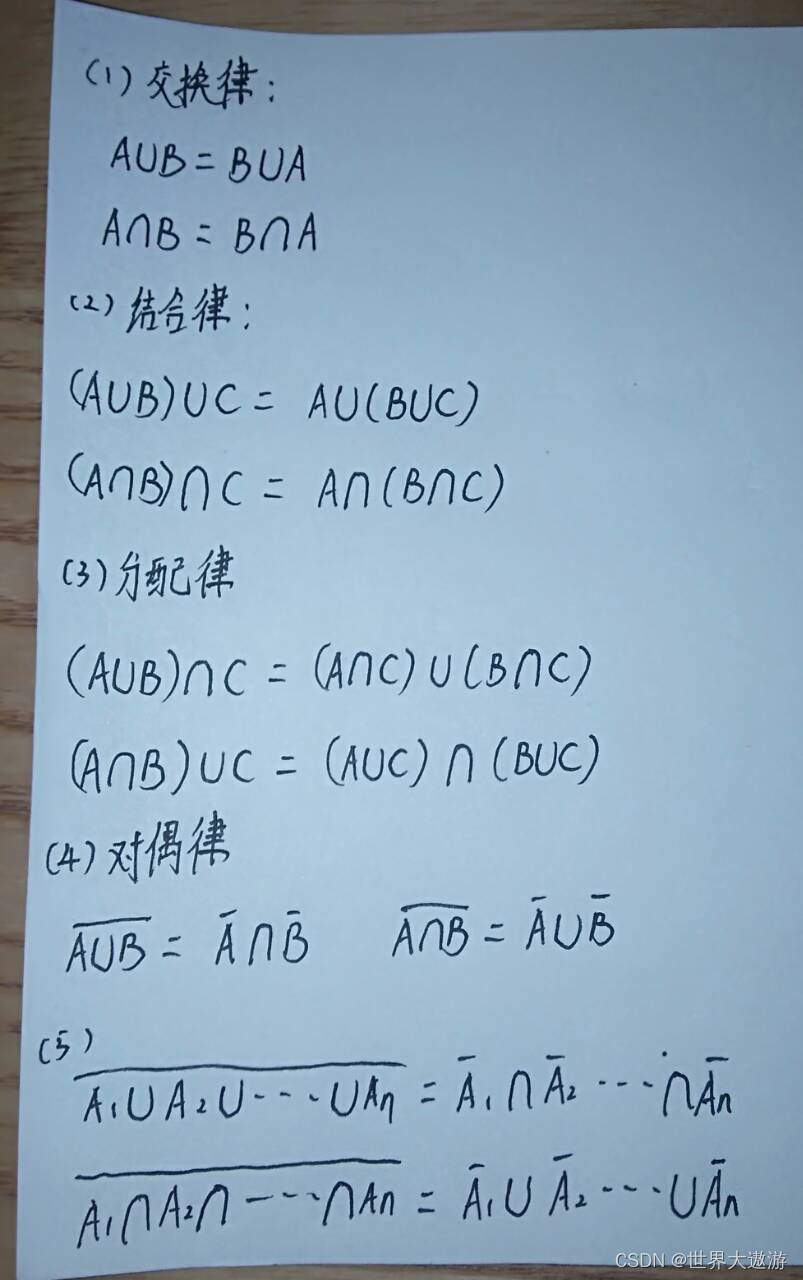 (1) 交换律：
A∪B = B∪A
A∩B = B∩A
(2) 结合律：
(A∪B)∪C = A∪(B∪C)
(A∩B)∩C = A∩(B∩C)
(3) 分配律
(A∪B)∩C = (A∩C)∪(B∩C)
(A∩B)∪C = (A∪C)∩(B∪C)
(4) 对偶律
A̅∪̅B̅ = A̅∩B̅    A̅∩̅B̅ = A̅∪B̅
(5)
A̅₁̅∪̅A̅₂̅∪̅·̅·̅·̅·̅∪̅A̅n̅ = A̅₁∩A̅₂····∩A̅n
A̅₁̅∩̅A̅₂̅∩̅·̅·̅·̅·̅∩̅A̅n̅ = A̅₁∪A̅₂····∪A̅n
CSDN @世界大遨游